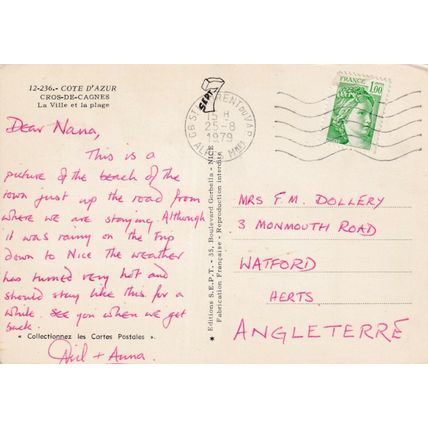 12-236.- COTE D'AZUR
CROS-DE-CAGNES
La Ville et la plage
Dear Nana,
This is a
picture of the beach of the
town just up the road from
where we are staying. Although
it was rainy on the trip
down to Nice the weather
has turned very hot and
should stay like this for a
while. See you when we get
back.
« Collectionnez les Cartes Postales ».
Neil + Anna.
Editions S.E.P.T. - 35, Boulevard Gorbella - NICE
Fabrication Française - Reproduction interdite
SEPT
06 ST LAURENT DU VAR
15 H
25-8
1979
ALPES MMES
FRANCE
1,00
MRS F.M. DOLLERY
3 MONMOUTH ROAD
WATFORD
HERTS.
ANGLETERRE